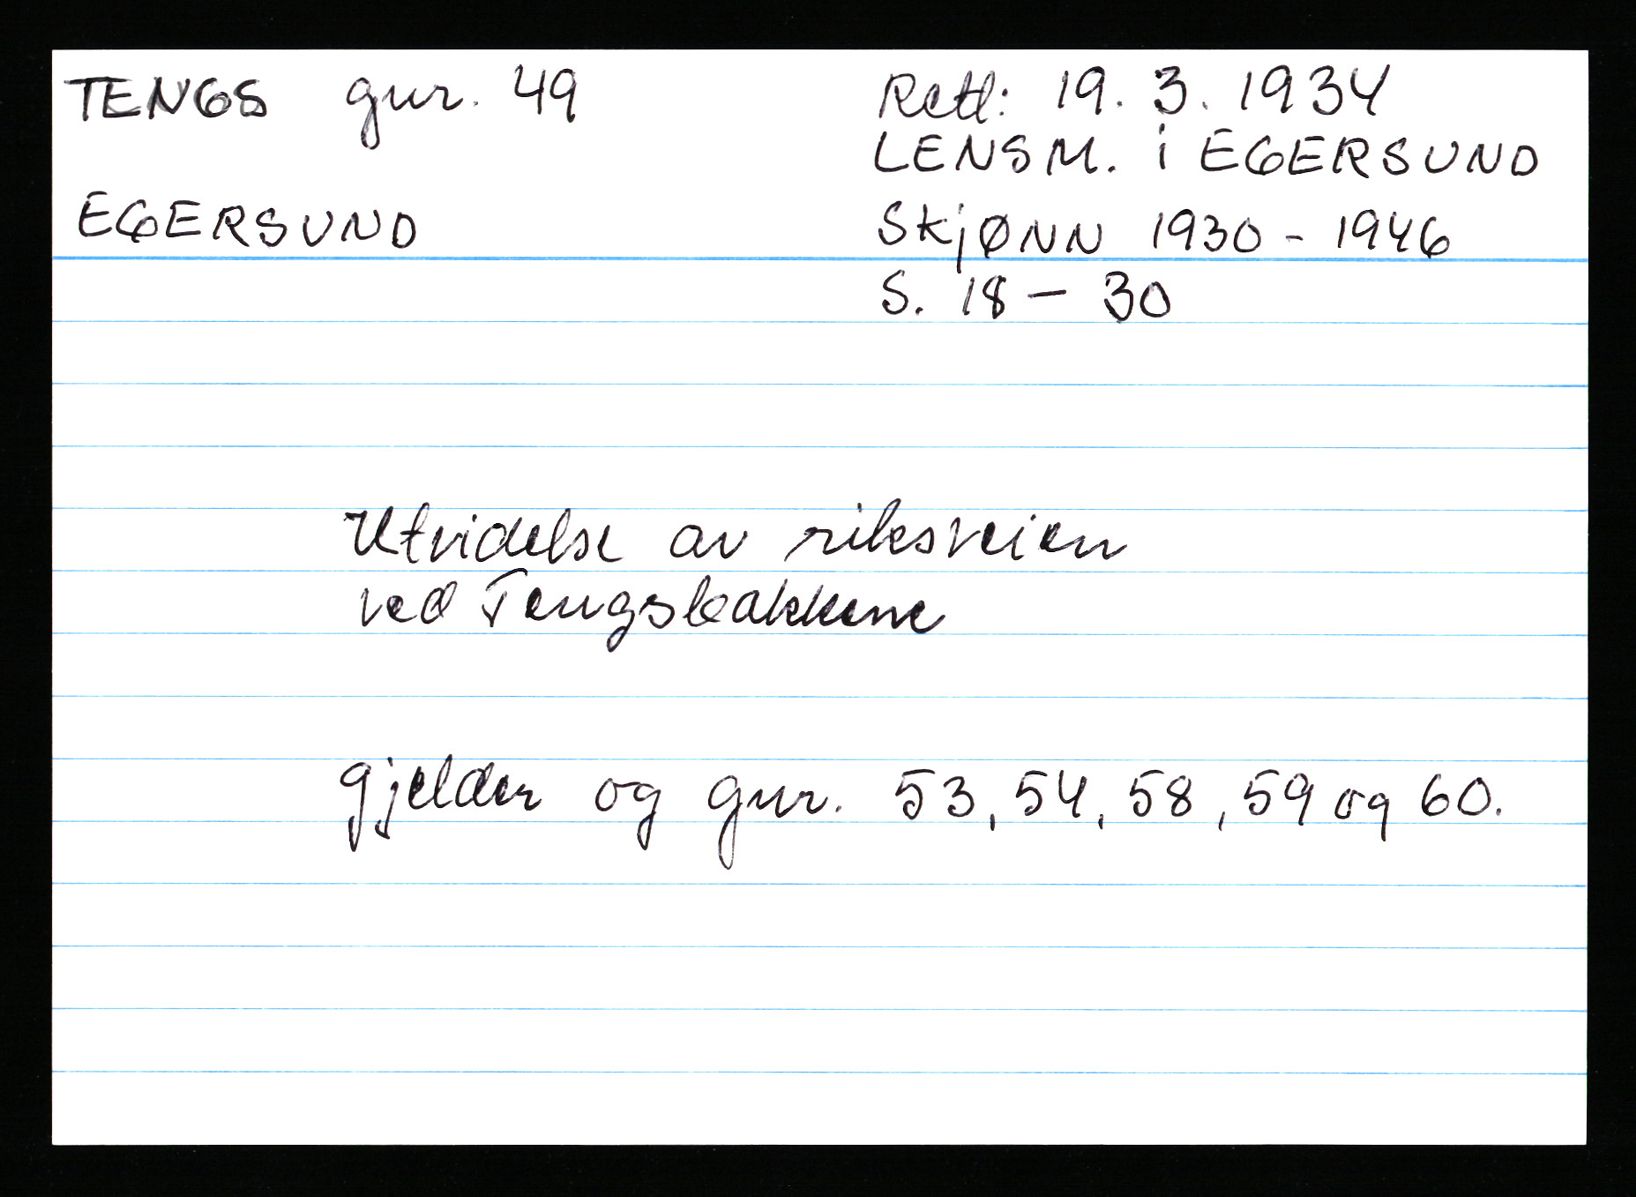 TENGS gnr. 49
EGERSUND
Rettl: 19. 3. 1934
LENSM. i EGERSUND
SkjØNN 1930 - 1946
S. 18 - 30
Utvidelse av riksveien
ved Tengsbakkene
gjelder og gnr. 53, 54, 58, 59 og 60.